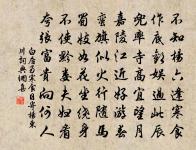 不知楊六逢寒食
作底歡娛過此辰
兜率寺高宜望月
嘉陵江近好遊春
蠻旗似火行隨馬
蜀妓如花坐繞身
不使黔婁夫婦看
夸張富貴向何人
白居易寒食日寄楊東
川詞典網集